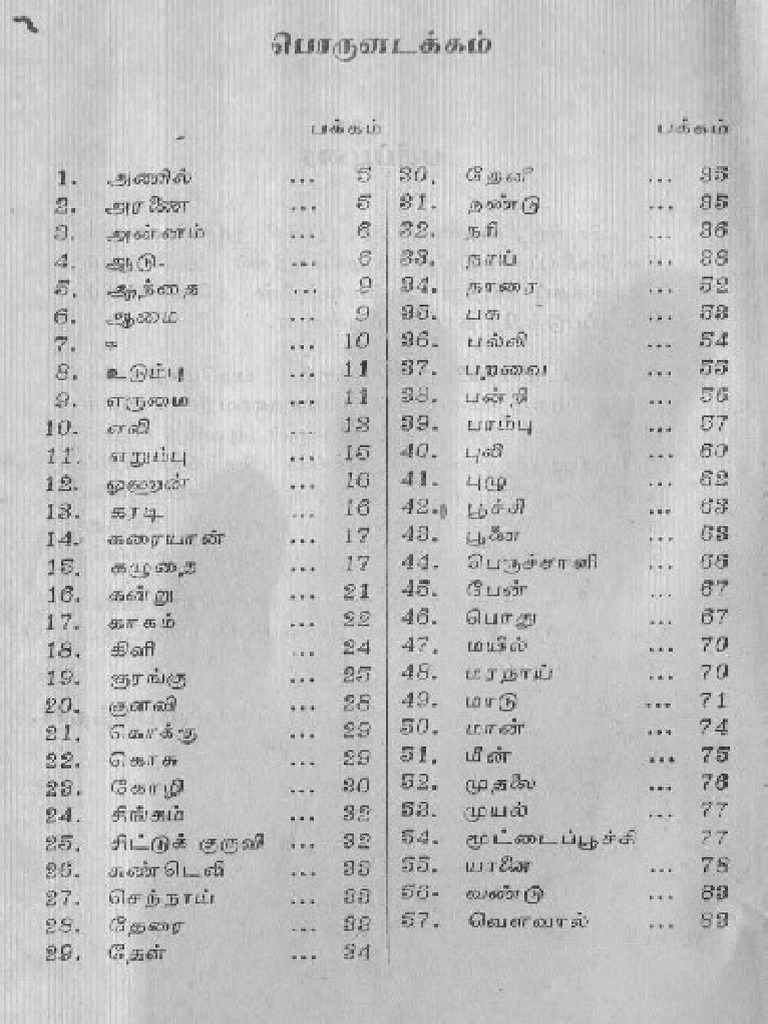 பொருளடக்கம்
பக்கம்
1. அணில் ... 5
2. அரணை ... 5
3. அன்னம் ... 6
4. ஆடு ... 6
5. ஆந்தை ... 9
6. ஆமை ... 9
7. ஈ ... 10
8. உடும்பு ... 11
9. எருமை ... 11
10. எலி ... 13
11. எறும்பு ... 15
12. ஓணான் ... 16
13. கரடி ... 16
14. கரையான் ... 17
15. கழுதை ... 17
16. கன்று ... 21
17. காகம் ... 22
18. கிளி ... 24
19. குரங்கு ... 25
20. குளவி ... 28
21. கொக்கு ... 29
22. கொசு ... 29
23. கோழி ... 30
24. சிங்கம் ... 32
25. சிட்டுக் குருவி ... 32
26. சுண்டெலி ... 33
27. செந்நாய் ... 33
28. தேரை ... 33
29. தேள் ... 34
பக்கம்
30. தேனீ ... 35
31. நண்டு ... 35
32. நரி ... 36
33. நாய் ... 38
34. நாரை ... 52
35. பசு ... 53
36. பல்லி ... 54
37. பறவை ... 55
38. பன்றி ... 56
39. பாம்பு ... 57
40. புலி ... 60
41. புழு ... 62
42. பூச்சி ... 63
43. பூனை ... 63
44. பெருச்சாளி ... 66
45. பேன் ... 67
46. பொது ... 67
47. மயில் ... 70
48. மரநாய் ... 70
49. மாடு ... 71
50. மான் ... 74
51. மீன் ... 75
52. முதலை ... 76
53. முயல் ... 77
54. மூட்டைப்பூச்சி 77
55. யானை ... 78
56. வண்டு ... 83
57. வௌவால் ... 83